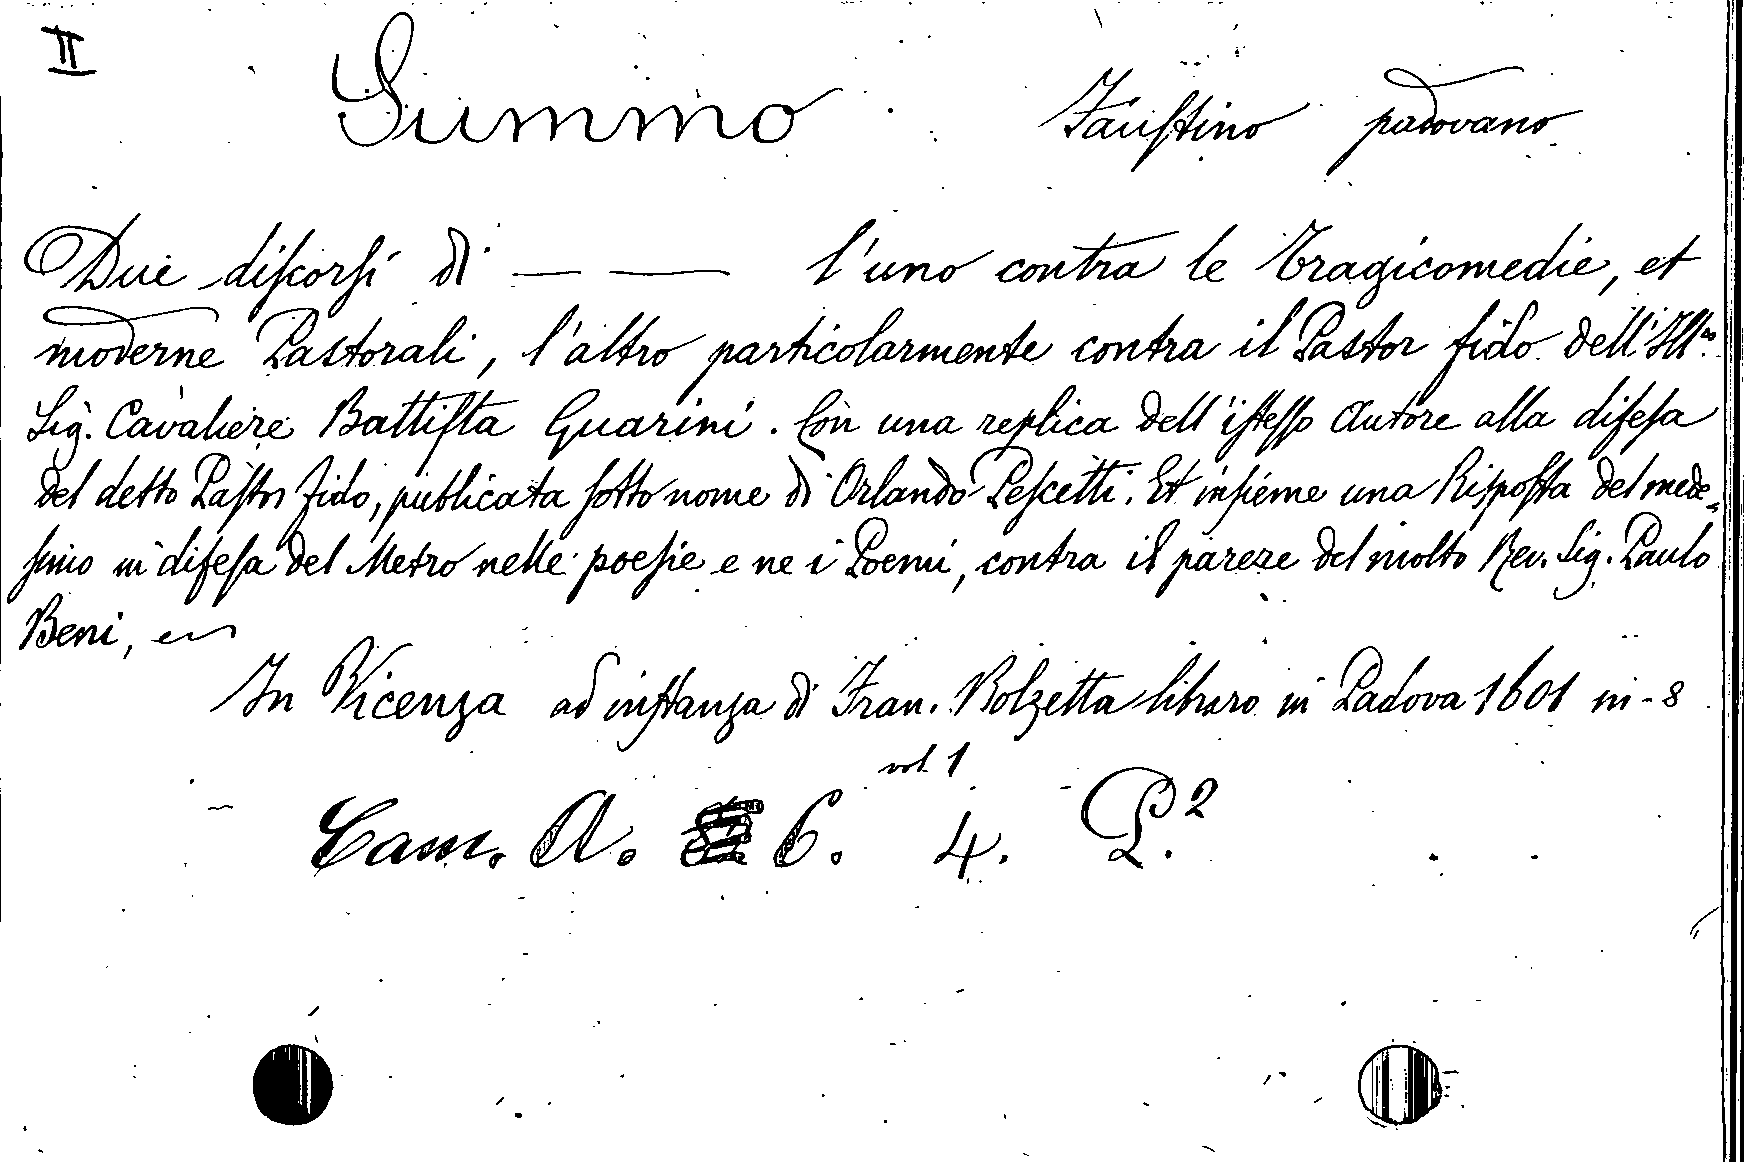 II
Summo Faustino padovano
Due discorsi di — — l'uno contra le Tragicomedie, et
moderne Pastorali, l'altro particolarmente contra il Pastor fido dell'Ill.mo
Sig. Cavaliere Battista Guarini. Con una replica dell'istesso Autore alla difesa
del detto Pastor fido, publicata sotto nome di Orlando Pescetti. Et insieme una Risposta del mede=
simo in difesa del Metro nelle poesie e ne i Poemi, contra il parere del molto Rev. Sig. Paulo
Beni,
In Vicenza ad instanza di Fran. Bolzetta libraro in Padova 1601 in-8
vol. 1
Cam. A. 6. 4. P.2